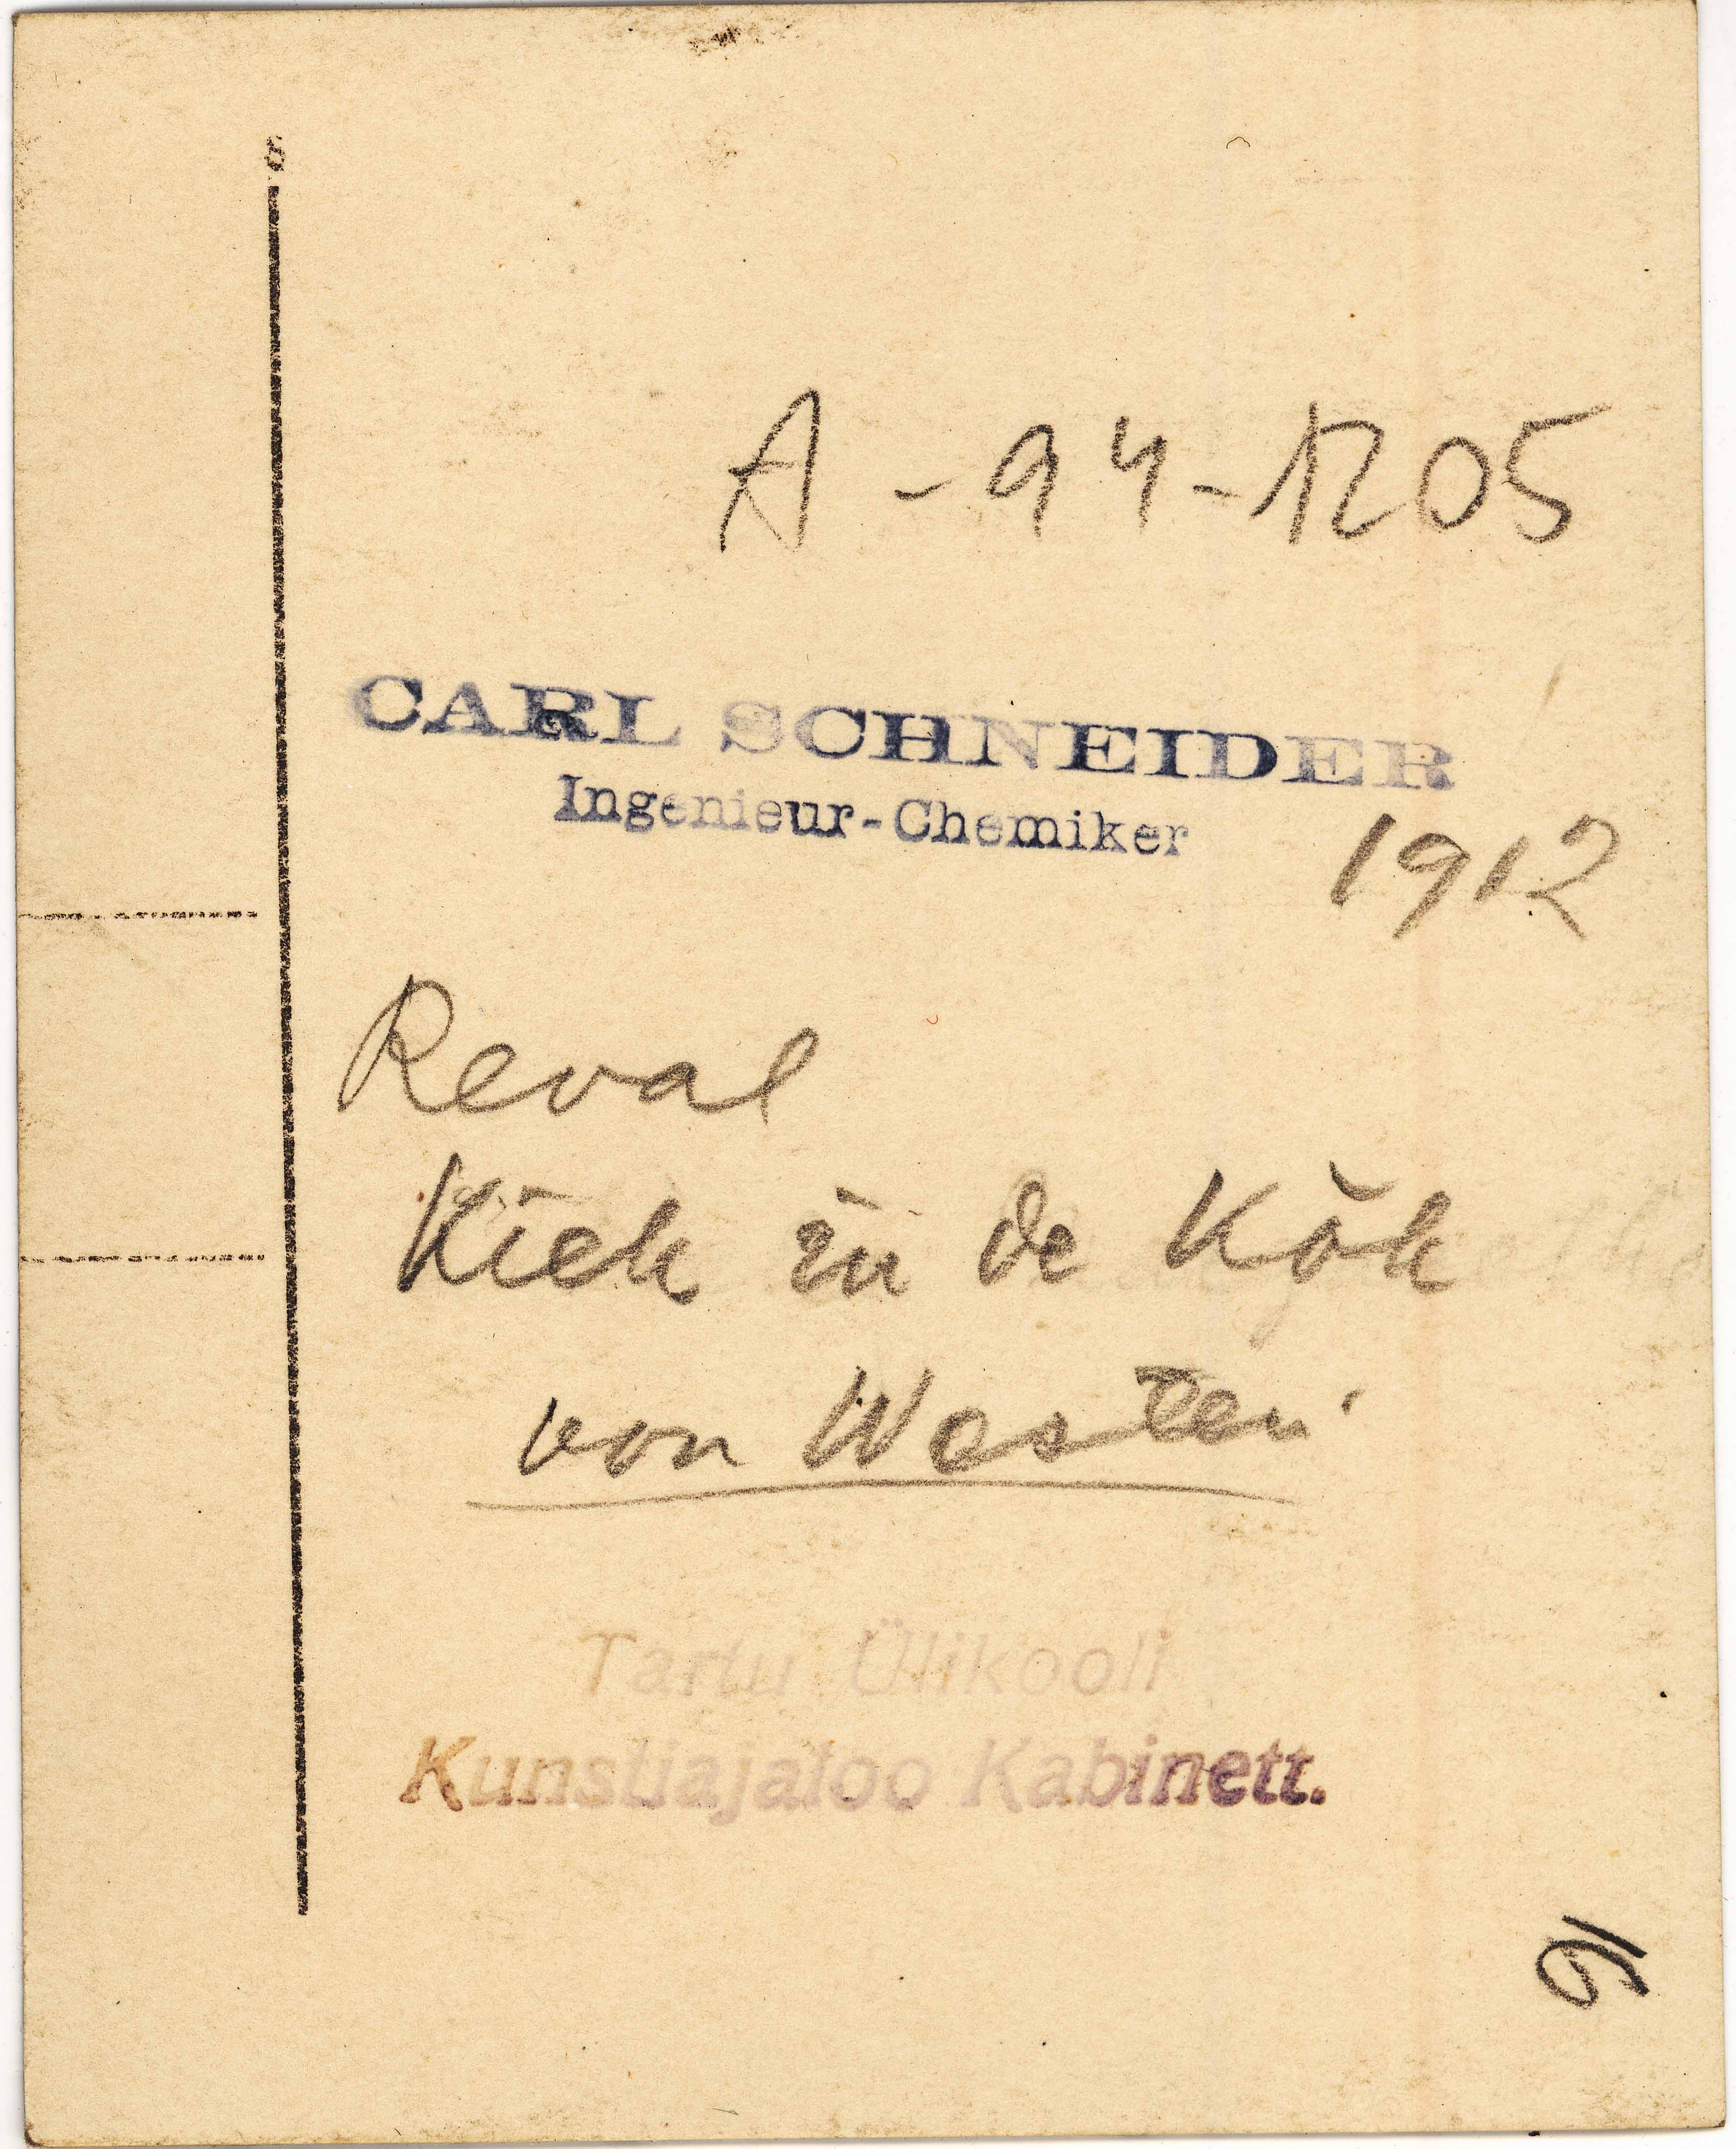 A-94-1205
CARL SCHNEIDER
Ingenieur-Chemiker
1912
Reval
Kiek in de Kök
von Westen
Tartu Ülikooli
Kunstiajaloo Kabinett.